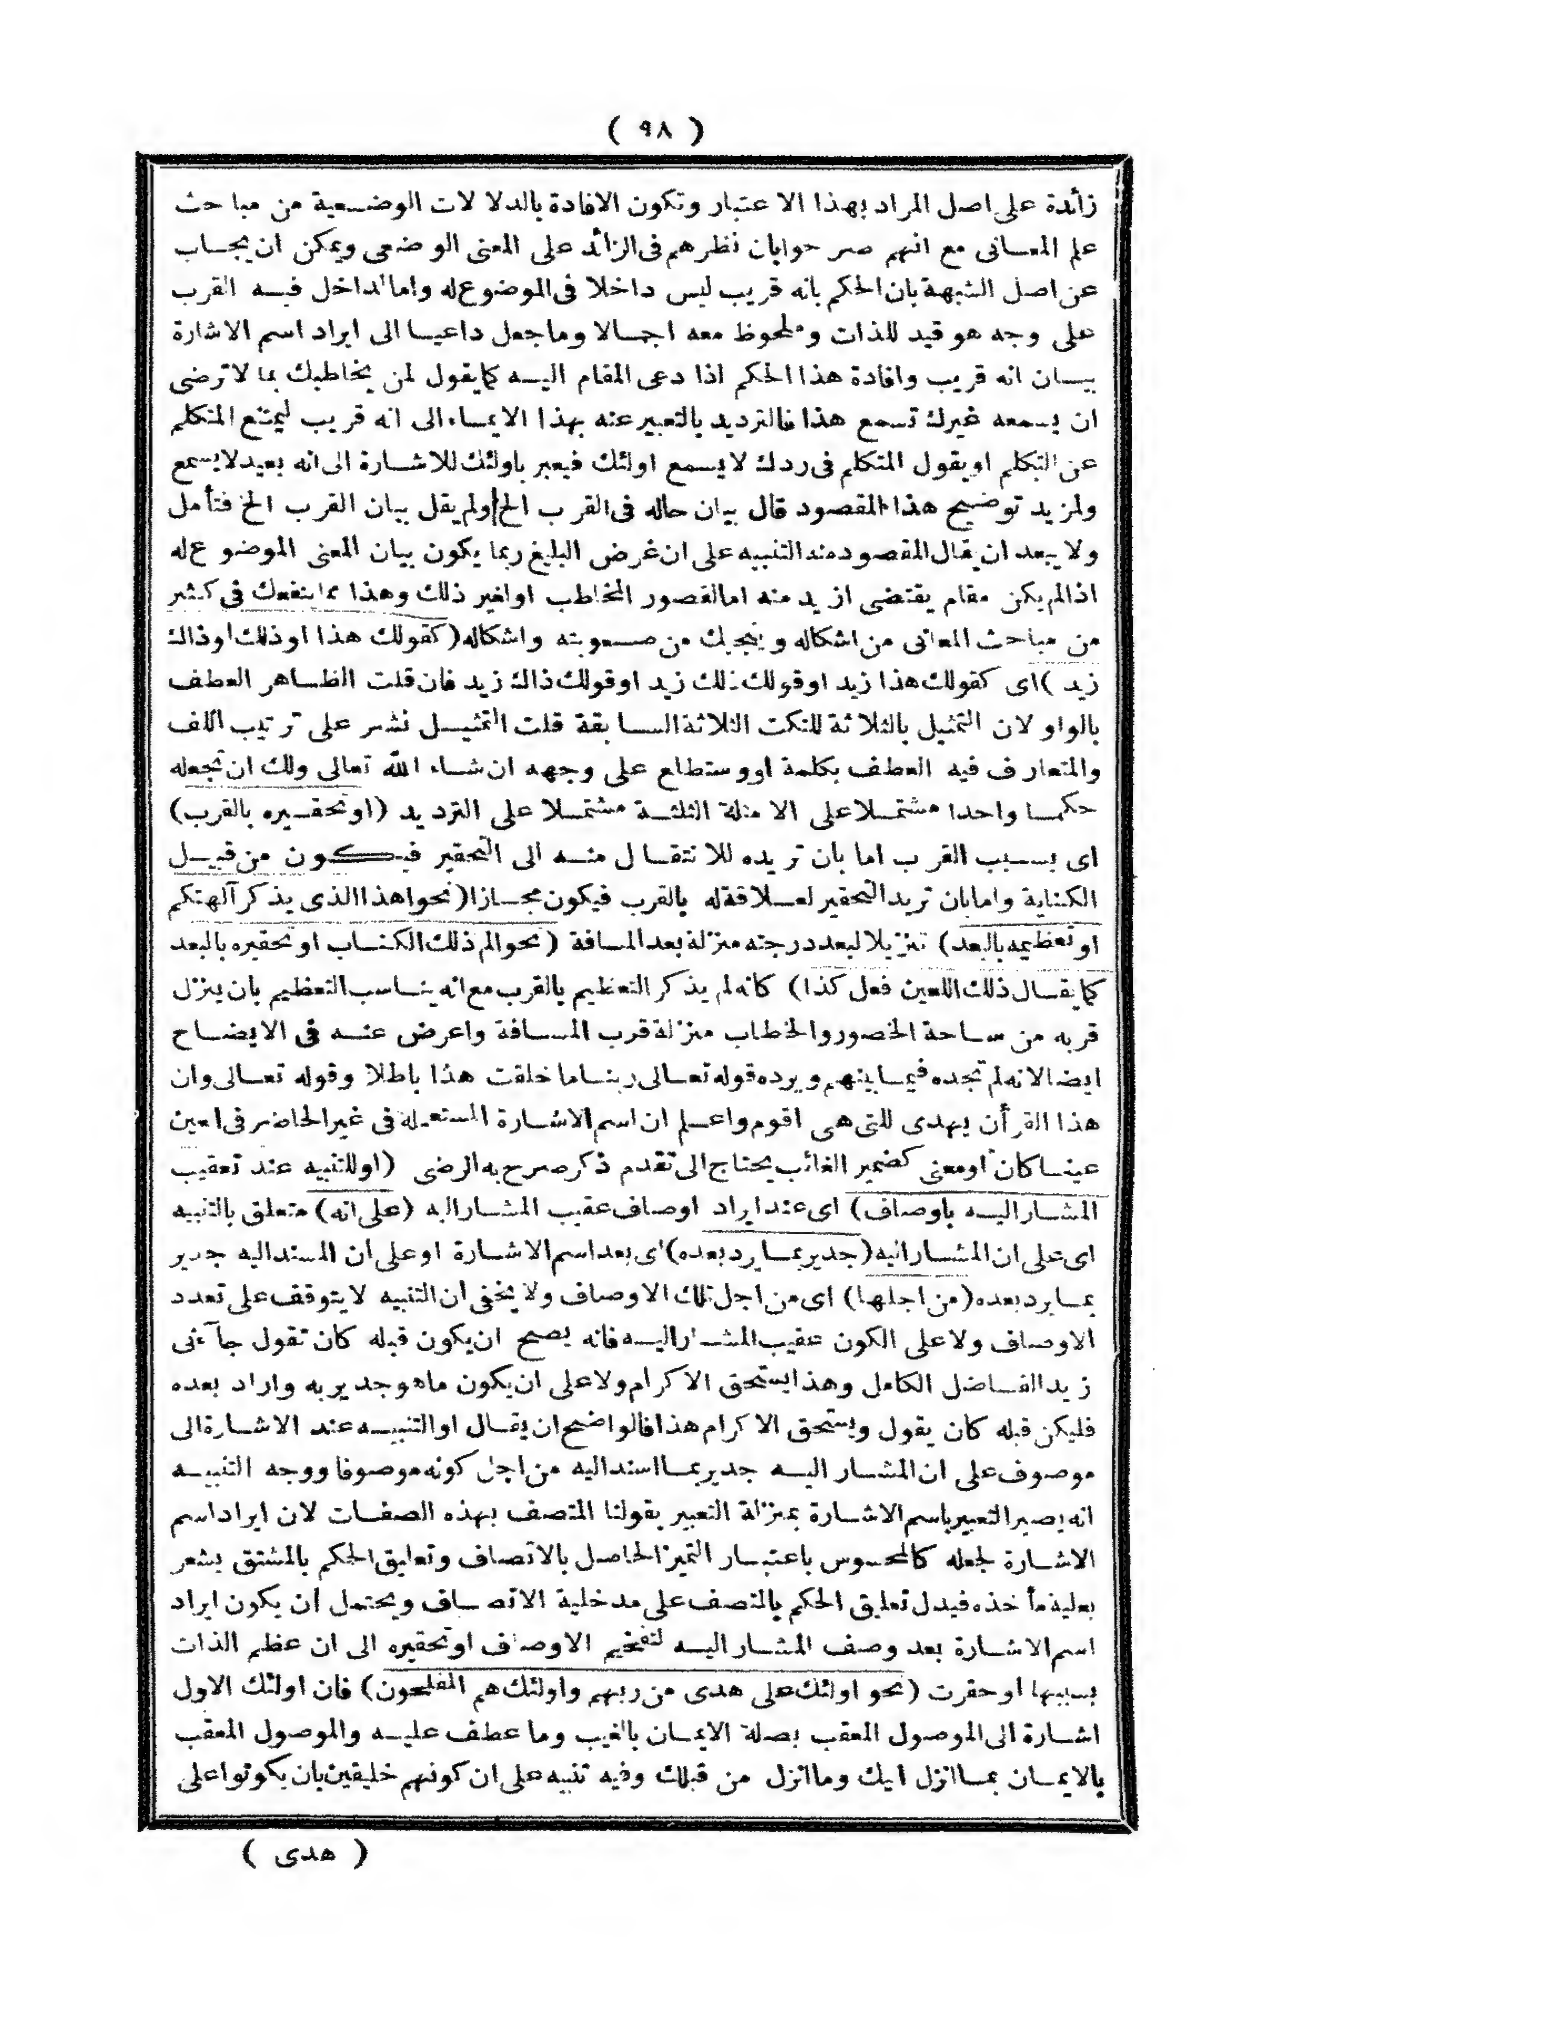 ( ٩٨ )
زائدة على اصل المراد بهذا الاعتبار وتكون الافادة بالدلالات الوضعية من مباحث
علم المعانى مع انهم صرحوا بان نظرهم فى الزائد على المعنى الوضعى ويمكن ان يجاب
عن اصل الشبهة بان الحكم بانه قريب ليس داخلا فى الموضوع له واما الداخل فيه القرب
على وجه هو قيد للذات وملحوظ معه اجمالا وما جعل داعيا الى ايراد اسم الاشارة
بيان انه قريب وافادة هذا الحكم اذا دعى المقام اليه كما يقول لمن يخاطبك بما لا ترضى
ان يسمعه غيرك تسمع هذا فالترديد بالتعبير عنه بهذا الايماء الى انه قريب ليمتنع المتكلم
عن التكلم او يقول المتكلم فى ردك لا يسمع اولئك فيعبر باولئك للاشارة الى انه بعيد لا يسمع
ولمزيد توضيح هذا المقصود قال بيان حاله فى القرب الخ ولم يقل بيان القرب الخ فتأمل
ولا يبعد ان يقال المقصود منه التنبيه على ان غرض البليغ ربما يكون بيان المعنى الموضوع له
اذا لم يكن مقام يقتضى ازيد منه اما لقصور المخاطب او لغير ذلك وهذا مما ينفعك فى كثير
من مباحث المعانى من اشكاله وينجيك من صعوبته واشكاله (كقولك هذا او ذلك او ذاك
زيد) اى كقولك هذا زيد او قولك ذلك زيد او قولك ذاك زيد فان قلت الظاهر العطف
بالواو لان التمثيل بالثلاثة للنكت الثلاثة السابقة قلت التمثيل نشر على ترتيب اللف
والمتعارف فيه العطف بكلمة او وستطلع على وجهه ان شاء الله تعالى ولك ان تجعله
حكما واحدا مشتملا على الامثلة الثلثة مشتملا على الترديد (او تحقيره بالقرب)
اى بسبب القرب اما بان تريده للانتقال منه الى التحقير فيكون من قبيل
الكناية واما بان تريد التحقير لعلاقة له بالقرب فيكون مجازا (نحو اهذا الذى يذكر آلهتكم
او تعظيمه بالبعد) تنزيلا لبعد درجته منزلة بعد المسافة (نحو الم ذلك الكتاب او تحقيره بالبعد
كما يقال ذلك اللعين فعل كذا) كانه لم يذكر التعظيم بالقرب مع انه يناسب التعظيم بان ينزل
قربه من ساحة الحضور والخطاب منزلة قرب المسافة واعرض عنه فى الايضاح
ايضا لانه لم تجده فيما بينهم ويرده قوله تعالى ربنا ما خلقت هذا باطلا وقوله تعالى وان
هذا القرأن يهدى للتى هى اقوم واعلم ان اسم الاشارة المستعملة فى غير الحاضر فى العين
عينا كان او معنى كضمير الغائب يحتاج الى تقدم ذكر صرح به الرضى (او للتنبيه عند تعقيب
المشار اليه باوصاف) اى عند ايراد اوصاف عقيب المشار اليه (على انه) متعلق بالتنبيه
اى على ان المشار اليه (جدير بما يرد بعده) اى بعد اسم الاشارة او على ان المسند اليه جدير
بما يرد بعده (من اجلها) اى من اجل تلك الاوصاف ولا يخفى ان التنبيه لا يتوقف على تعدد
الاوصاف ولا على الكون عقيب المشار اليه فانه يصح ان يكون قبله كان تقول جآءنى
زيد الفاضل الكامل وهذا يستحق الاكرام ولا على ان يكون ما هو جدير به واراد بعده
فليكن قبله كان يقول ويستحق الاكرام هذا فالواضح ان يقال او التنبيه عند الاشارة الى
موصوف على ان المشار اليه جدير بما اسند اليه من اجل كونه موصوفا ووجه التنبيه
انه يصير التعبير باسم الاشارة بمنزلة التعبير بقولنا المتصف بهذه الصفات لان ايراد اسم
الاشارة لجعله كالمحسوس باعتبار التميز الحاصل بالاتصاف وتعليق الحكم بالمشتق يشعر
بعلية مأخذه فيدل تعليق الحكم بالمتصف على مدخلية الاتصاف ويحتمل ان يكون ايراد
اسم الاشارة بعد وصف المشار اليه لتفخيم الاوصاف او تحقيره الى ان عظم الذات
بسببها او حقرت (نحو اولئك على هدى من ربهم واولئك هم المفلحون) فان اولئك الاول
اشارة الى الموصول المعقب بصلة الايمان بالغيب وما عطف عليه والموصول المعقب
بالايمان بما انزل اليك وما انزل من قبلك وفيه تنبيه على ان كونهم خليقين بان يكونوا على
( هدى )